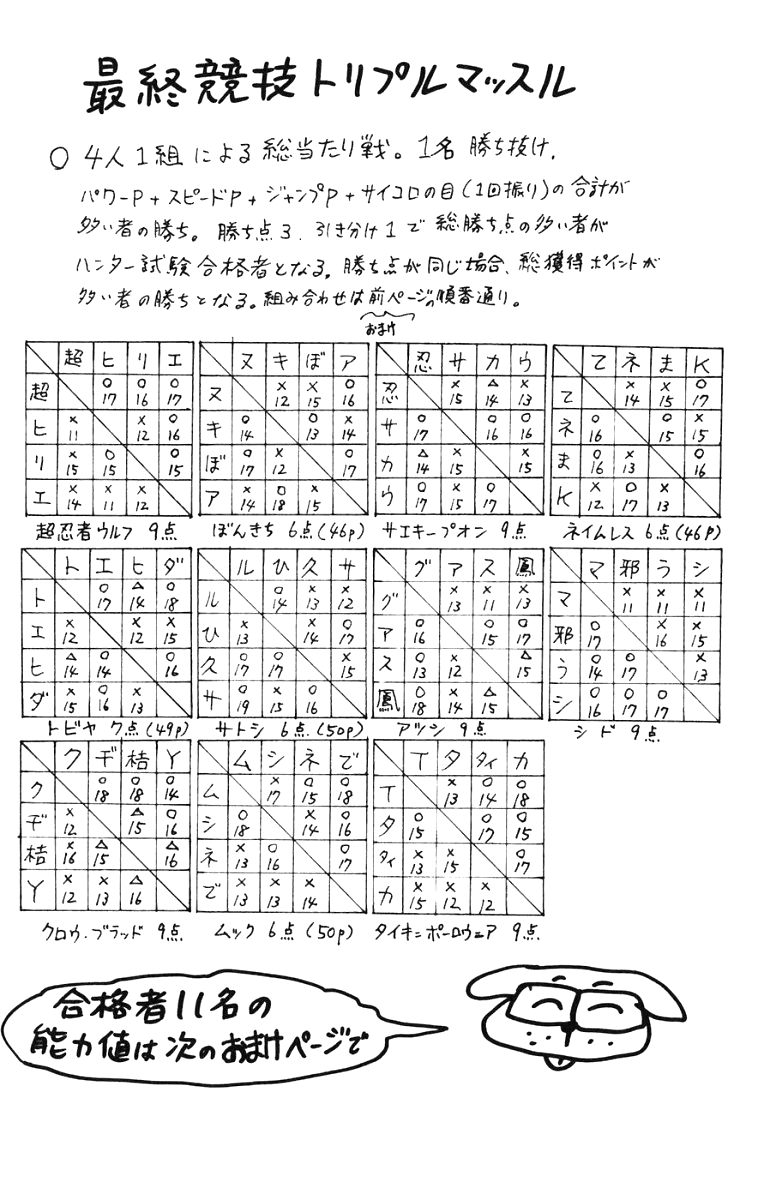 最終競技トリプルマッスル
○ 4人1組による総当たり戦。1名勝ち抜け。
パワーP+スピードP+ジャンプP+サイコロの目(1回振り)の合計が
多い者の勝ち。勝ち点3、引き分け1で総勝ち点の多い者が
ハンター試験合格者となる。勝ち点が同じ場合、総獲得ポイントが
多い者の勝ちとなる。組み合わせは前ページの順番通り。
おまけ
超 ヒ リ エ
超 ○17 ○16 ○17
ヒ ×11 ×12 ○16
リ ×15 ○15 ○15
エ ×14 ×11 ×12
超忍者ウルフ 9点
ヌ キ ぼ ア
ヌ ×12 ×15 ○16
キ ○14 ○13 ×14
ぼ ○17 ×12 ○17
ア ×14 ○18 ×15
ぼんきち 6点(46P)
忍 サ カ ウ
忍 ×15 △14 ×13
サ ○17 ○16 ○16
カ △14 ×15 ×15
ウ ○17 ×15 ○17
サエキープオン 9点
て ネ ま K
て ×14 ×15 ○17
ネ ○16 ○15 ×15
ま ○16 ×13 ○16
K ×12 ○17 ×13
ネイムレス 6点(46P)
ト エ ヒ ダ
ト ○17 △14 ○18
エ ×12 ×12 ×15
ヒ △14 ○14 ○16
ダ ×15 ○16 ×13
トビヤ 7点(49P)
ル ひ 久 サ
ル ○14 ×13 ×12
ひ ×13 ×14 ○17
久 ○17 ○17 ×15
サ ○19 ×15 ○16
サトシ 6点.(50P)
グ ア ス 鳳
グ ×13 ×11 ×13
ア ○16 ○15 ○17
ス ○13 ×12 △15
鳳 ○18 ×14 △15
アツシ 9点
マ 邪 う シ
マ ×11 ×11 ×11
邪 ○17 ×16 ×15
う ○14 ○17 ×13
シ ○16 ○17 ○17
シド 9点
ク ヂ 桔 Y
ク ○18 ○18 ○14
ヂ ×12 △15 ○16
桔 ×16 △15 △16
Y ×12 ×13 △16
クロウ・ブラッド 9点
ム シ ネ で
ム ×17 ○15 ○18
シ ○18 ×14 ○16
ネ ×13 ○16 ○17
で ×13 ×13 ×14
ムック 6点(50P)
T タ タイ カ
T ×13 ○14 ○18
タ ○15 ○17 ○15
タイ ×13 ×15 ○17
カ ×15 ×12 ×12
タイキ=ポーロウニア 9点
合格者11名の
能力値は次のおまけページで